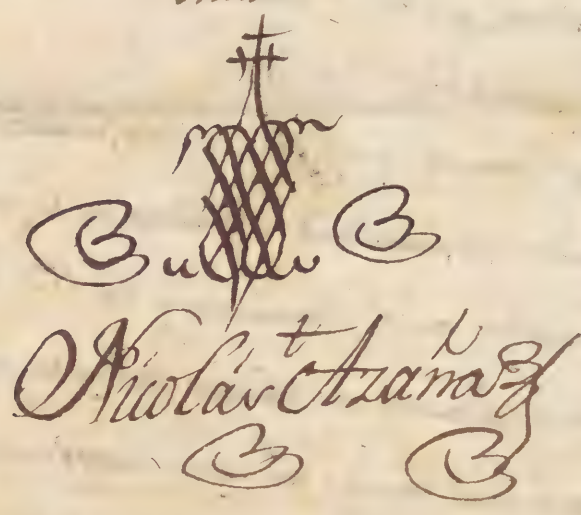 Nicolás Azaña